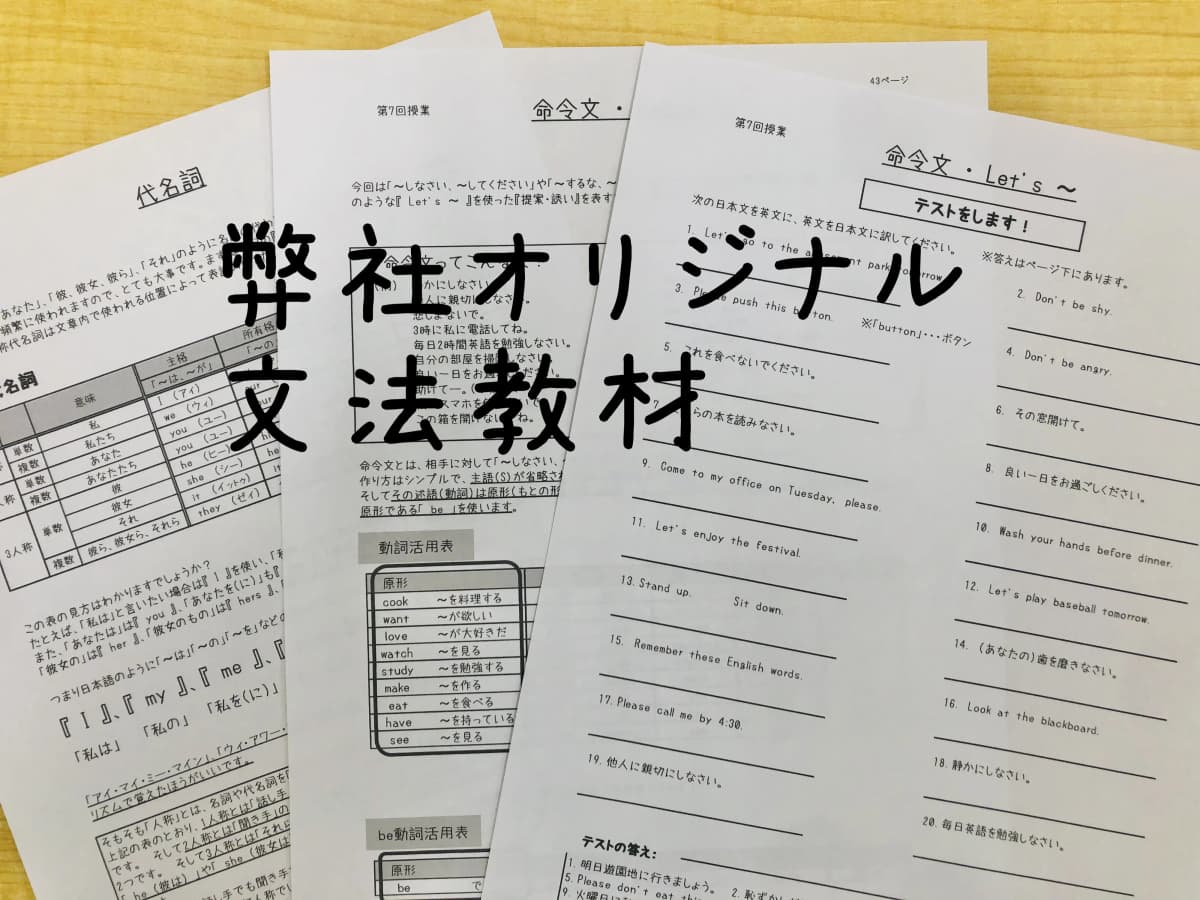 弊社オリジナル
文法教材
代名詞
「あなた」、「彼、彼女、彼ら」、「それ」のように名
頻繁に使われますので、とても大事です。まず
称代名詞は文章内で使われる位置によって表
名詞
意味
主格
所有格
「〜は、〜が」
「〜の
単数
私
I (アイ)
複数
私たち
we (ウィ)
our
単数
あなた
you (ユー)
複数
あなたたち
you (ユー)
3人称
単数
彼
he (ヒー)
彼女
she (シー)
それ
it (イットゥ)
複数
彼ら、彼女ら、それら
they (ゼイ)
この表の見方はわかりますでしょうか？
たとえば、「私は」と言いたい場合は『 I 』を使い、「私
また、「あなたは」は『 you 』、「あなたを(に)」も『
「彼女の」は『 her 』、「彼女のもの」は『 hers 』、
つまり日本語のように「〜は」「〜の」「〜を」などの
『 I 』、『 my 』、『 me 』、『
「私は」 「私の」 「私を(に)」
「アイ・マイ・ミー・マイン」、「ウィ・アワー・
リズムで覚えたほうがいいです。
そもそも「人称」とは、名詞や代名詞を「
上記の表のとおり、1人称とは「話し手
です。そして2人称とは「聞き手」の
2つです。 そして3人称とは「それ
「 he (彼は) 」や「 she (彼女は
第7回授業
命令文 ・
今回は「〜しなさい、〜してください」や「〜するな、〜
のような『 Let's 〜 』を使った『提案・誘い』を表す
命令文って
かにしなさい
人に親切にしなさい。
悲しまないで。
3時に私に電話してね。
毎日2時間英語を勉強しなさい。
自分の部屋を掃除しなさい
命令文とは、相手に対して「〜しなさい、
作り方はシンプルで、主語(S)が省略され
そしてその述語(動詞)は原形(もとの形
原形である「 be 」を使います。
動詞活用表
原形
cook 〜を料理する
want 〜が欲しい
love 〜が大好きだ
watch 〜を見る
study 〜を勉強する
make 〜を作る
eat 〜を食べる
have 〜を持っている
see 〜を見る
be動詞活用表
原形
be
43ページ
第7回授業
命令文 ・ Let's 〜
テストをします！
次の日本文を英文に、英文を日本文に訳してください。
※答えはページ下にあります。
1. Let's go to the amusement park tomorrow.
2. Don't be shy.
3. Please push this button. ※「button」・・・ボタン
4. Don't be angry.
5. これを食べないでください。
6. その窓開けて。
7. らの本を読みなさい。
8. 良い一日をお過ごしください。
9. Come to my office on Tuesday, please.
10. Wash your hands before dinner.
11. Let's enjoy the festival.
12. Let's play baseball tomorrow.
13. Stand up. Sit down.
14. (あなたの)歯を磨きなさい。
15. Remember these English words.
16. Look at the blackboard.
17. Please call me by 4:30.
18. 静かにしなさい。
19. 他人に親切にしなさい。
20. 毎日英語を勉強しなさい。
テストの答え:
1. 明日遊園地に行きましょう。 2. 恥ずかし
5. Please don't eat this
9. 火曜日に